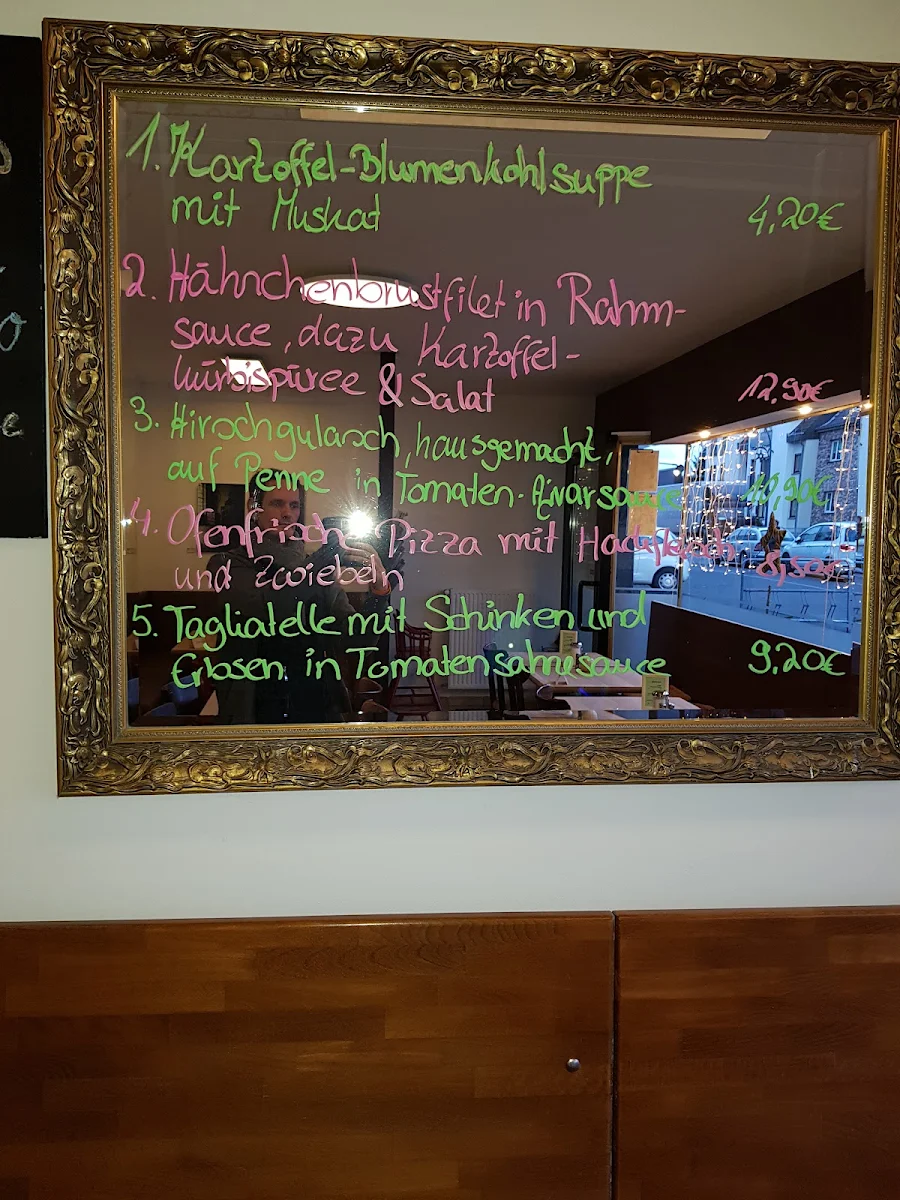 1. Kartoffel-Blumenkohlsuppe
mit Muskat 4,20€
2. Hähnchenbrustfilet in Rahm-
sauce, dazu Kartoffel-
kürbispüree & Salat 12,90€
3. Hirschgulasch, hausgemacht,
auf Penne in Tomaten-Ajvarsauce 10,90€
4. Ofenfrische Pizza mit Hackfleisch
und Zwiebeln 8,50€
5. Tagliatelle mit Schinken und
Erbsen in Tomatensahnesauce 9,20€